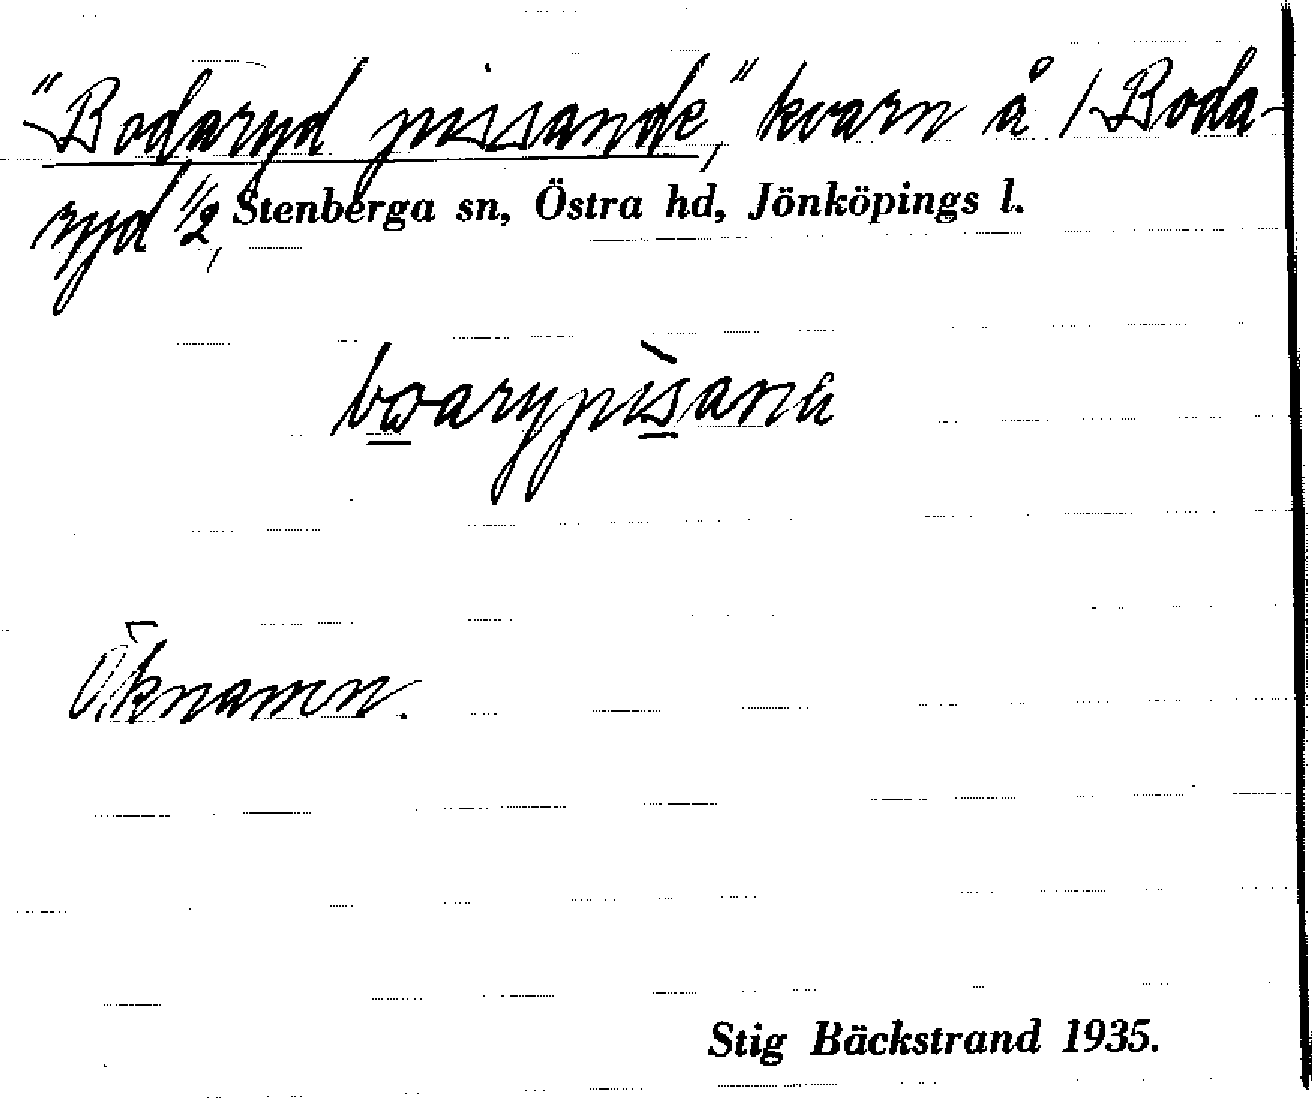 "Bodaryd pissande," kvarn å /Boda-
ryd 1/2, Stenberga sn, Östra hd, Jönköpings l.
Öknamn.
Stig Bäckstrand 1935.